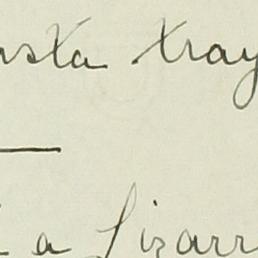 sta tray
a lizarr